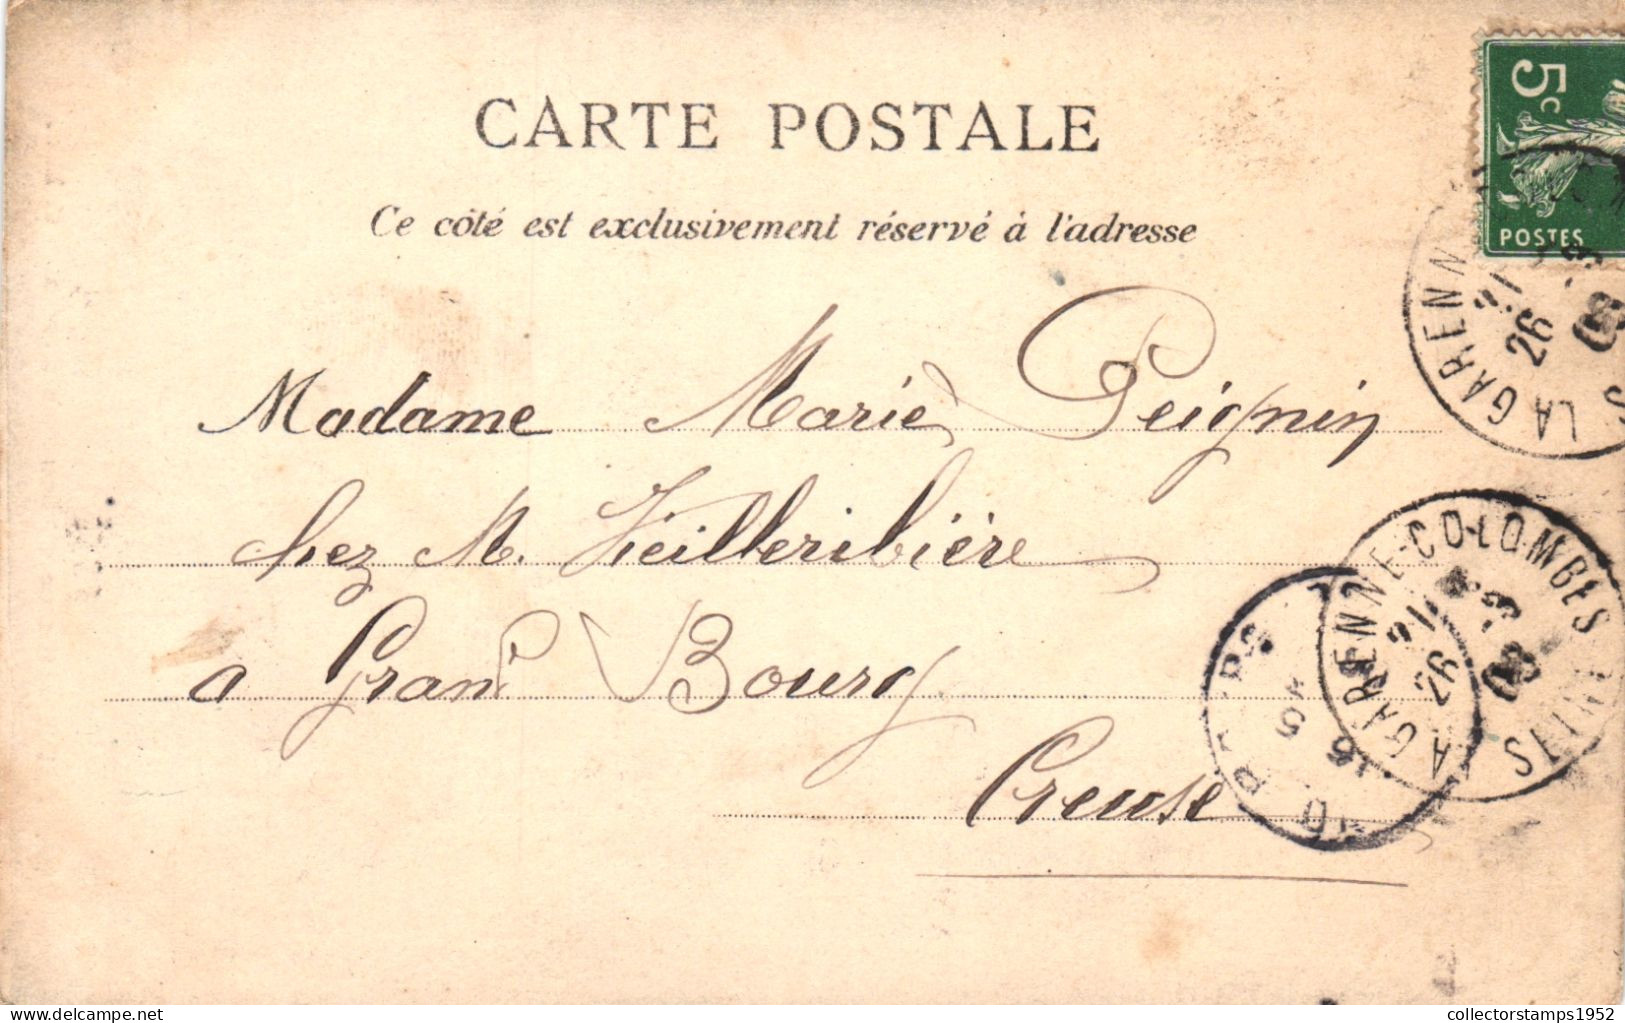 CARTE POSTALE
Ce côté est exclusivement réservé à l'adresse
5c
POSTES
LA GARENN
26
08
S
Madame Marie Peignin
chez M. Vieilleribière
a Grand Bourg
Creuse
LA GARENNE-COLOMBES
SEINE
26
08
collectorstamps1952